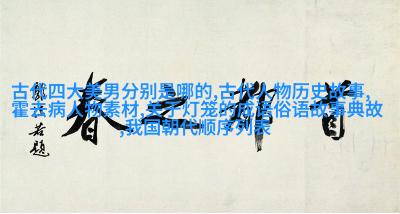 古代四大美男分别是哪的,古代人物历史故事,
霍去病人物素材,关于灯笼的成语俗语故事典故
,我国朝代顺序列表
首都之春
若题